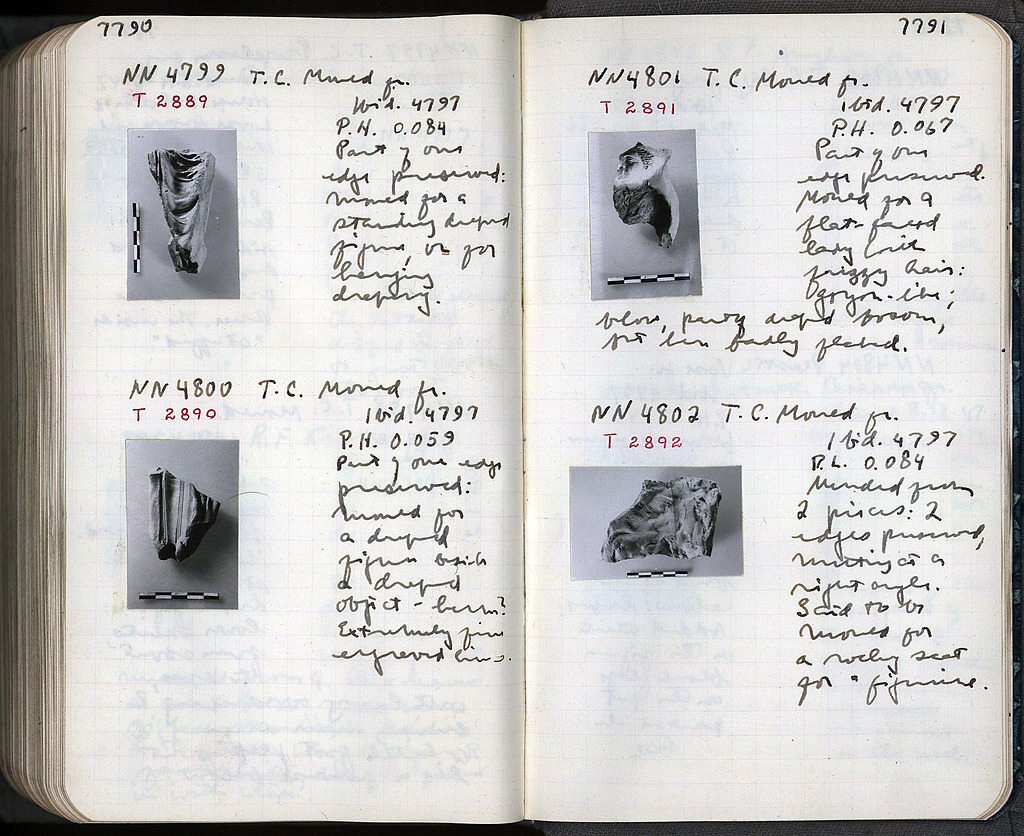 7790
NN 4799 T.C. Mould fr.
T 2889
Ibid. 4797
P.H. 0.084
Part of one
edge preserved:
mould for a
standing draped
figure, or for
hanging
drapery.
NN 4800 T.C. Mould fr.
T 2890
Ibid. 4797
P.H. 0.059
Part of one edge
preserved:
mould for
a draped
figure beside
a draped
object - herm?
Extremely fine
engraved lines.
7791
NN 4801 T.C. Mould fr.
T 2891
Ibid. 4797
P.H. 0.067
Part of one
edge preserved.
Mould for a
flat-faced
lady with
frizzy hair:
gorgon-like;
below, partly draped bosom,
but here badly flaked.
NN 4802 T.C. Mould fr.
T 2892
Ibid. 4797
P.L. 0.084
Mended from
2 pieces: 2
edges preserved,
meeting at a
right angle.
Said to be
mould for
a rocky seat
for a figurine.